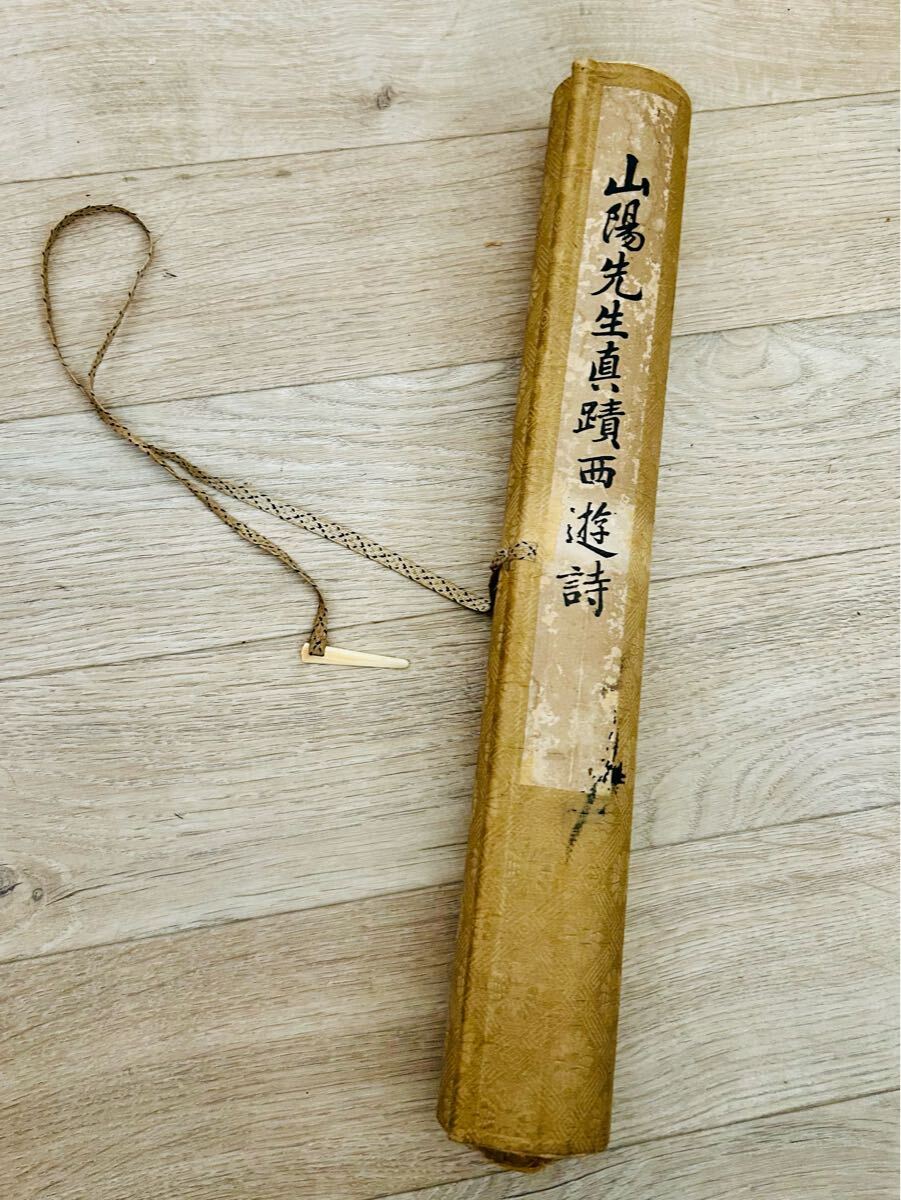 山陽先生真蹟西遊詩